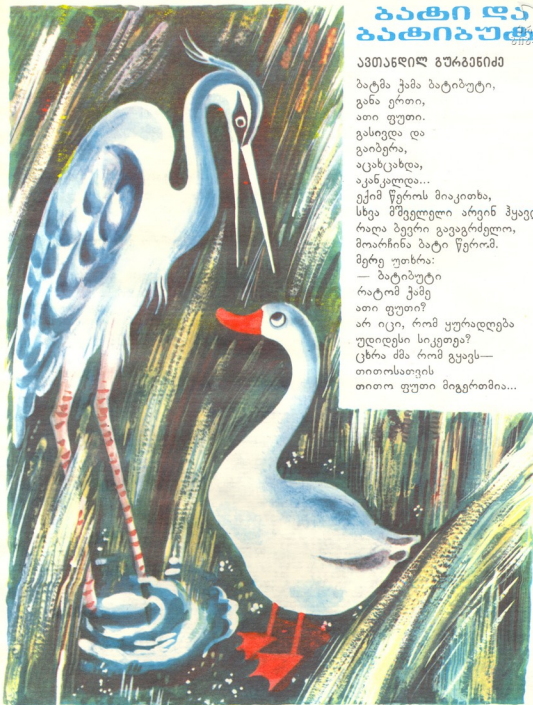 ბატი და
ბატიბუტი
ავთანდილ გურგენიძე
ბატმა ჭამა ბატიბუტი,
განა ერთი,
ათი ფუთი.
გასივდა და
გაიბერა,
აცახცახდა,
აკანკალდა...
ექიმ წეროს მიაკითხა,
სხვა მშველელი არვინ ჰყავდა
რაღა ბევრი გავაგრძელო,
მოარჩინა ბატი წერომ.
მერე უთხრა:
— ბატიბუტი
რატომ ჭამე
ათი ფუთი?
არ იცი, რომ ყურადღება
უდიდესი სიკეთეა?
ცხრა ძმა რომ გყავს—
თითოსათვის
თითო ფუთი მიგერთმია...